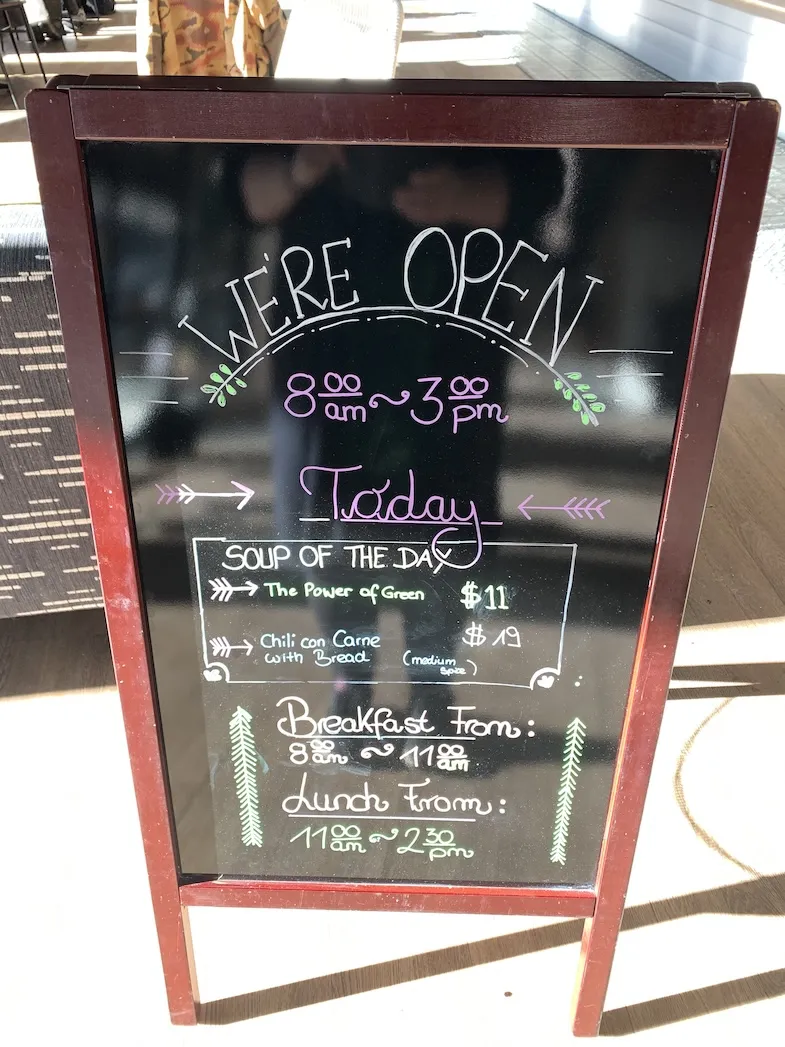 WE'RE OPEN
8 00 am ~ 3 00 pm
Today
SOUP OF THE DAY
The Power of Green $11
Chili con Carne $19
with Bread (medium
spice)
Breakfast From:
8 00 am ~ 11 00 am
Lunch From:
11 00 am ~ 2 30 pm